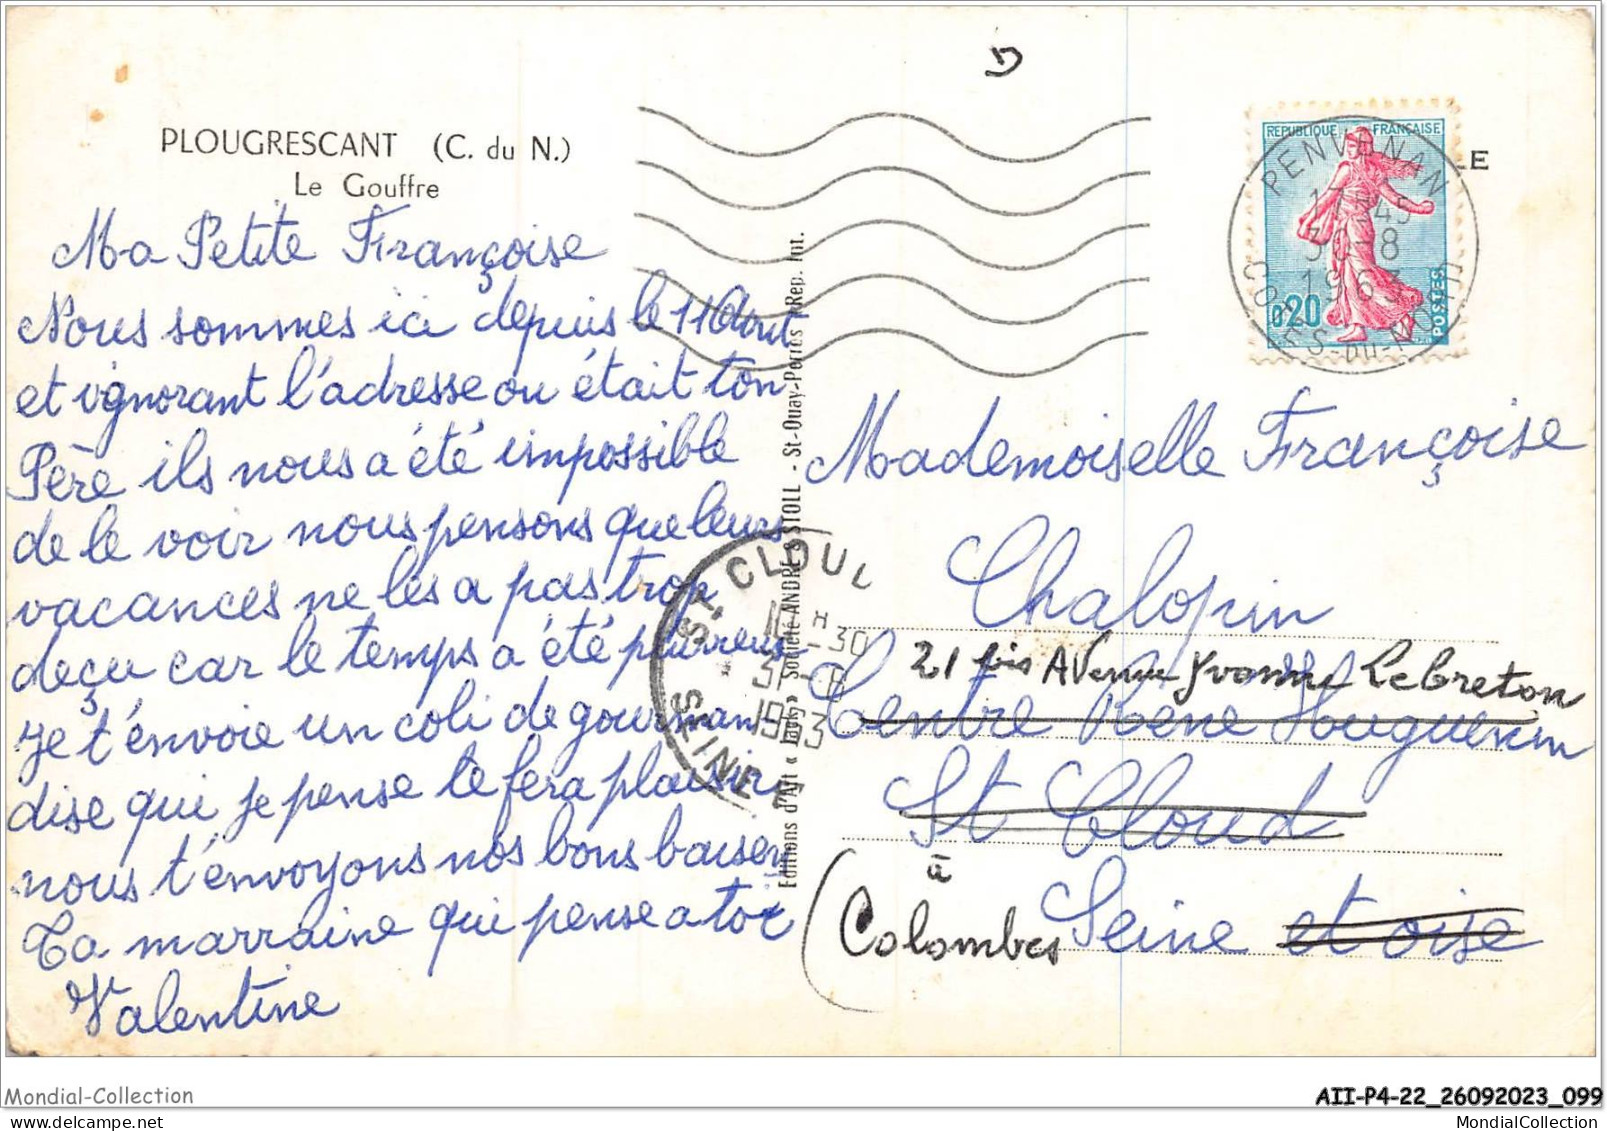 PLOUGRESCANT (C. du N.)
Le Gouffre
Ma Petite Françoise
Nous sommes ici depuis le 11 Aout
et ignorant l'adresse ou était ton
Père ils nous a été impossible
de le voir nous pensons que leurs
vacances ne les a pas trop
deçu car le temps a été pluvieux
Je t'envoie un coli de gourman-
dise qui je pense te fera plaisir
nous t'envoyons nos bons baisers
Ta marraine qui pense a toi
Valentine
Editions d'Art « Jack » Société ANDRÉ STOLL - St-Quay-Portrieux Rep. Int.
ST CLOUD
11 H -30
31-8
1963
SEINE
D
REPUBLIQUE FRANÇAISE
0,20
POSTES
PENVENAN
17H45
30-8
1963
COTES-DU-NORD
LE
Mademoiselle Françoise
Chalopin
21 bis Avenue Yvonne Le Breton
Centre René Huguenin
St Cloud
à
Colombes
Seine et oise
Mondial-Collection
AII-P4-22_26092023_099
MondialCollection.com